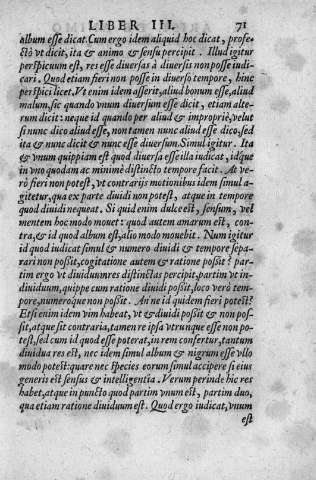 LIBER III. 71
album esse dicat. Cum ergo idem aliquid hoc dicat, profe-
ctò vt dicit, ita & animo & sensu percipit. Illud igitur
perspicuum est, res esse diuersas à diuersis non posse iudi-
cari. Quod etiam fieri non posse in diuerso tempore, hinc
perspici licet. Vt enim idem asserit, aliud bonum esse, aliud
malum, sic quando vnum diuersum esse dicit, etiam alte-
rum dicit: neque id quando per aliud & impropriè, velut
si nunc dico aliud esse, non tamen nunc aliud esse dico, sed
ita & nunc dicit & nunc esse diuersum. Simul igitur. Ita
& vnum quippiam est quod diuersa esse illa iudicat, idque
in vno quodam ac minimè distincto tempore facit. At ve-
rò fieri non potest, vt contrarijs motionibus idem simul a-
gitetur, qua ex parte diuidi non potest, atque in tempore
quod diuidi nequeat. Si quid enim dulce est, sensum, vel
mentem hoc modo mouet: quod autem amarum est, con-
tra, & id quod album est, alio modo mouebit. Num igitur
id quod iudicat simul & numero diuidi & tempore sepa-
rari non possit, cogitatione autem & ratione possit? par-
tim ergo vt diuiduum res distinctas percipit, partim vt in-
diuiduum, quippe cum ratione diuidi possit, loco verò tem-
pore, numeroque non possit. An ne id quidem fieri potest?
Etsi enim idem vim habeat, vt & diuidi possit & non pos-
sit, atque sit contraria, tamen re ipsa vtrunque esse non po-
test, sed cum id quod esse poterat, in rem confertur, tantum
diuidua res est, nec idem simul album & nigrum esse vllo
modo potest: quare nec species eorum simul accipere si eius
generis est sensus & intelligentia. Verum perinde hic res
habet, atque in puncto quod partim vnum est, partim duo,
qua etiam ratione diuiduum est. Quod ergo iudicat, vnum
est